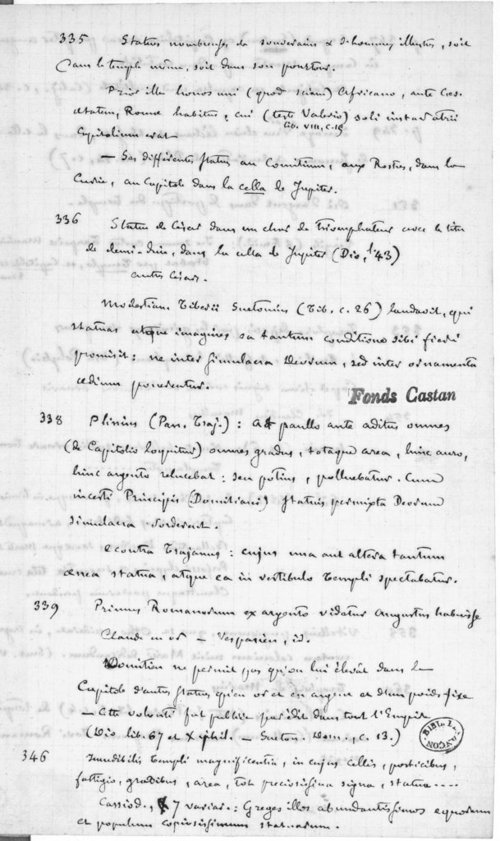 335 Statues nombreuses de souverains & d'hommes illustres, soit
dans le temple même, soit dans son pourtour.
Prior ille honos uni (quod sciam) Africano, ante Cæs.
ætatem, Romæ habitus, cui (teste Valerio) soli instar atrii
lib. VIII, c. 15.
Capitolium erat —
— Ses différentes statues au Comitium, aux Rostres, dans la
Curie, au Capitole dans la cella de Jupiter.
336 Statue de César dans un char de triomphateur avec le titre
de demi-dieu, dans la cella de Jupiter (Dio, l. 43)
Modestiam Tiberii Suetonius (Tib. c. 26) laudavit, qui
statuas atque imagines ea tantum conditione sibi fieri
promisit : ne inter simulacra Deorum, sed inter ornamenta
ædium ponerentur.
Fonds Castan
338 Plinius (Pan. Traj.) : At paullo ante aditus omnes
(de Capitolio loquitur) omnes gradus, totaque area, hinc auro,
hinc argento relucebat : seu potius, polluebatur. Cum
incesti Principis (Domitiani) statuis permixta Deorum
simulacra sorderent.
e contra Trajanus : cujus una aut altera tantum
ærea statua, atque ea in vestibulo templi spectabatur.
339 Primus Romanorum ex argento videtur Augustus habuisse
Claude un id — Vespasien, id.
Domitien ne permit pas qu'on lui élevât dans le
Capitole d'autres statues qu'en or et en argent et d'un poids fixe
(Dio lib. 67 et Xiphil. — Sueton. Dom., c. 13.)
BIBL.
346 templi magnificentia, in cujus cellis, porticibus,
fastigio, gradibus, area, tot preciosissima signa, statuæ ....
Cassiod., 7 variar. : Greges illos abundantissimos equorum
et populum copiosissimum statuarum.